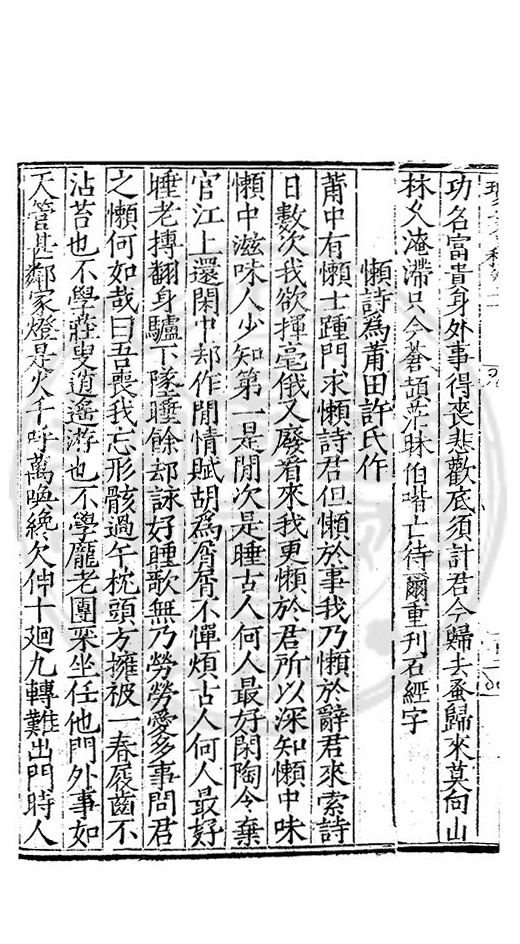 功名富貴身外事得喪悲歡底須計君今歸去蚤歸來莫向山
林久淹滯只今蒼頡茫昧伯喈亡待爾重刊石經字
懶詩為莆田許氏作
莆中有懶士踵門求懶詩君但懶於事我乃懶於辭君來索詩
日數次我欲揮毫俄又廢看來我更懶於君所以深知懶中味
懶中滋味人少知第一是閒次是睡古人何人最好閑陶令棄
官江上還閑中却作閒情賦胡為屑屑不憚煩古人何人最好
睡老摶翻身驢下墜睡餘却詠好睡歌無乃勞勞愛多事問君
之懶何如哉曰吾喪我忘形骸過午枕頭方擁被一春屐齒不
沾苔也不學莊叟逍遙游也不學龐老團圞坐任他門外事如
天管甚鄰家燈是火千呼萬喚纔欠伸十廻九轉難出門時人